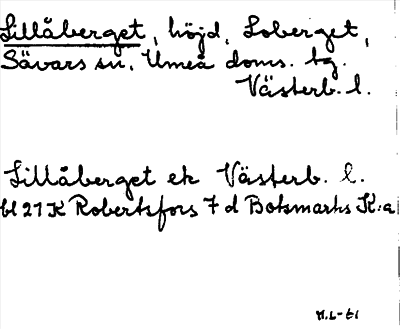 Lillåberget, höjd, Loberget,
Sävars sn, Umeå doms. tg.
Västerb. l.
Lillåberget ek Västerb. l.
bl 21 K Robertsfors 7 d Botsmarks K:a